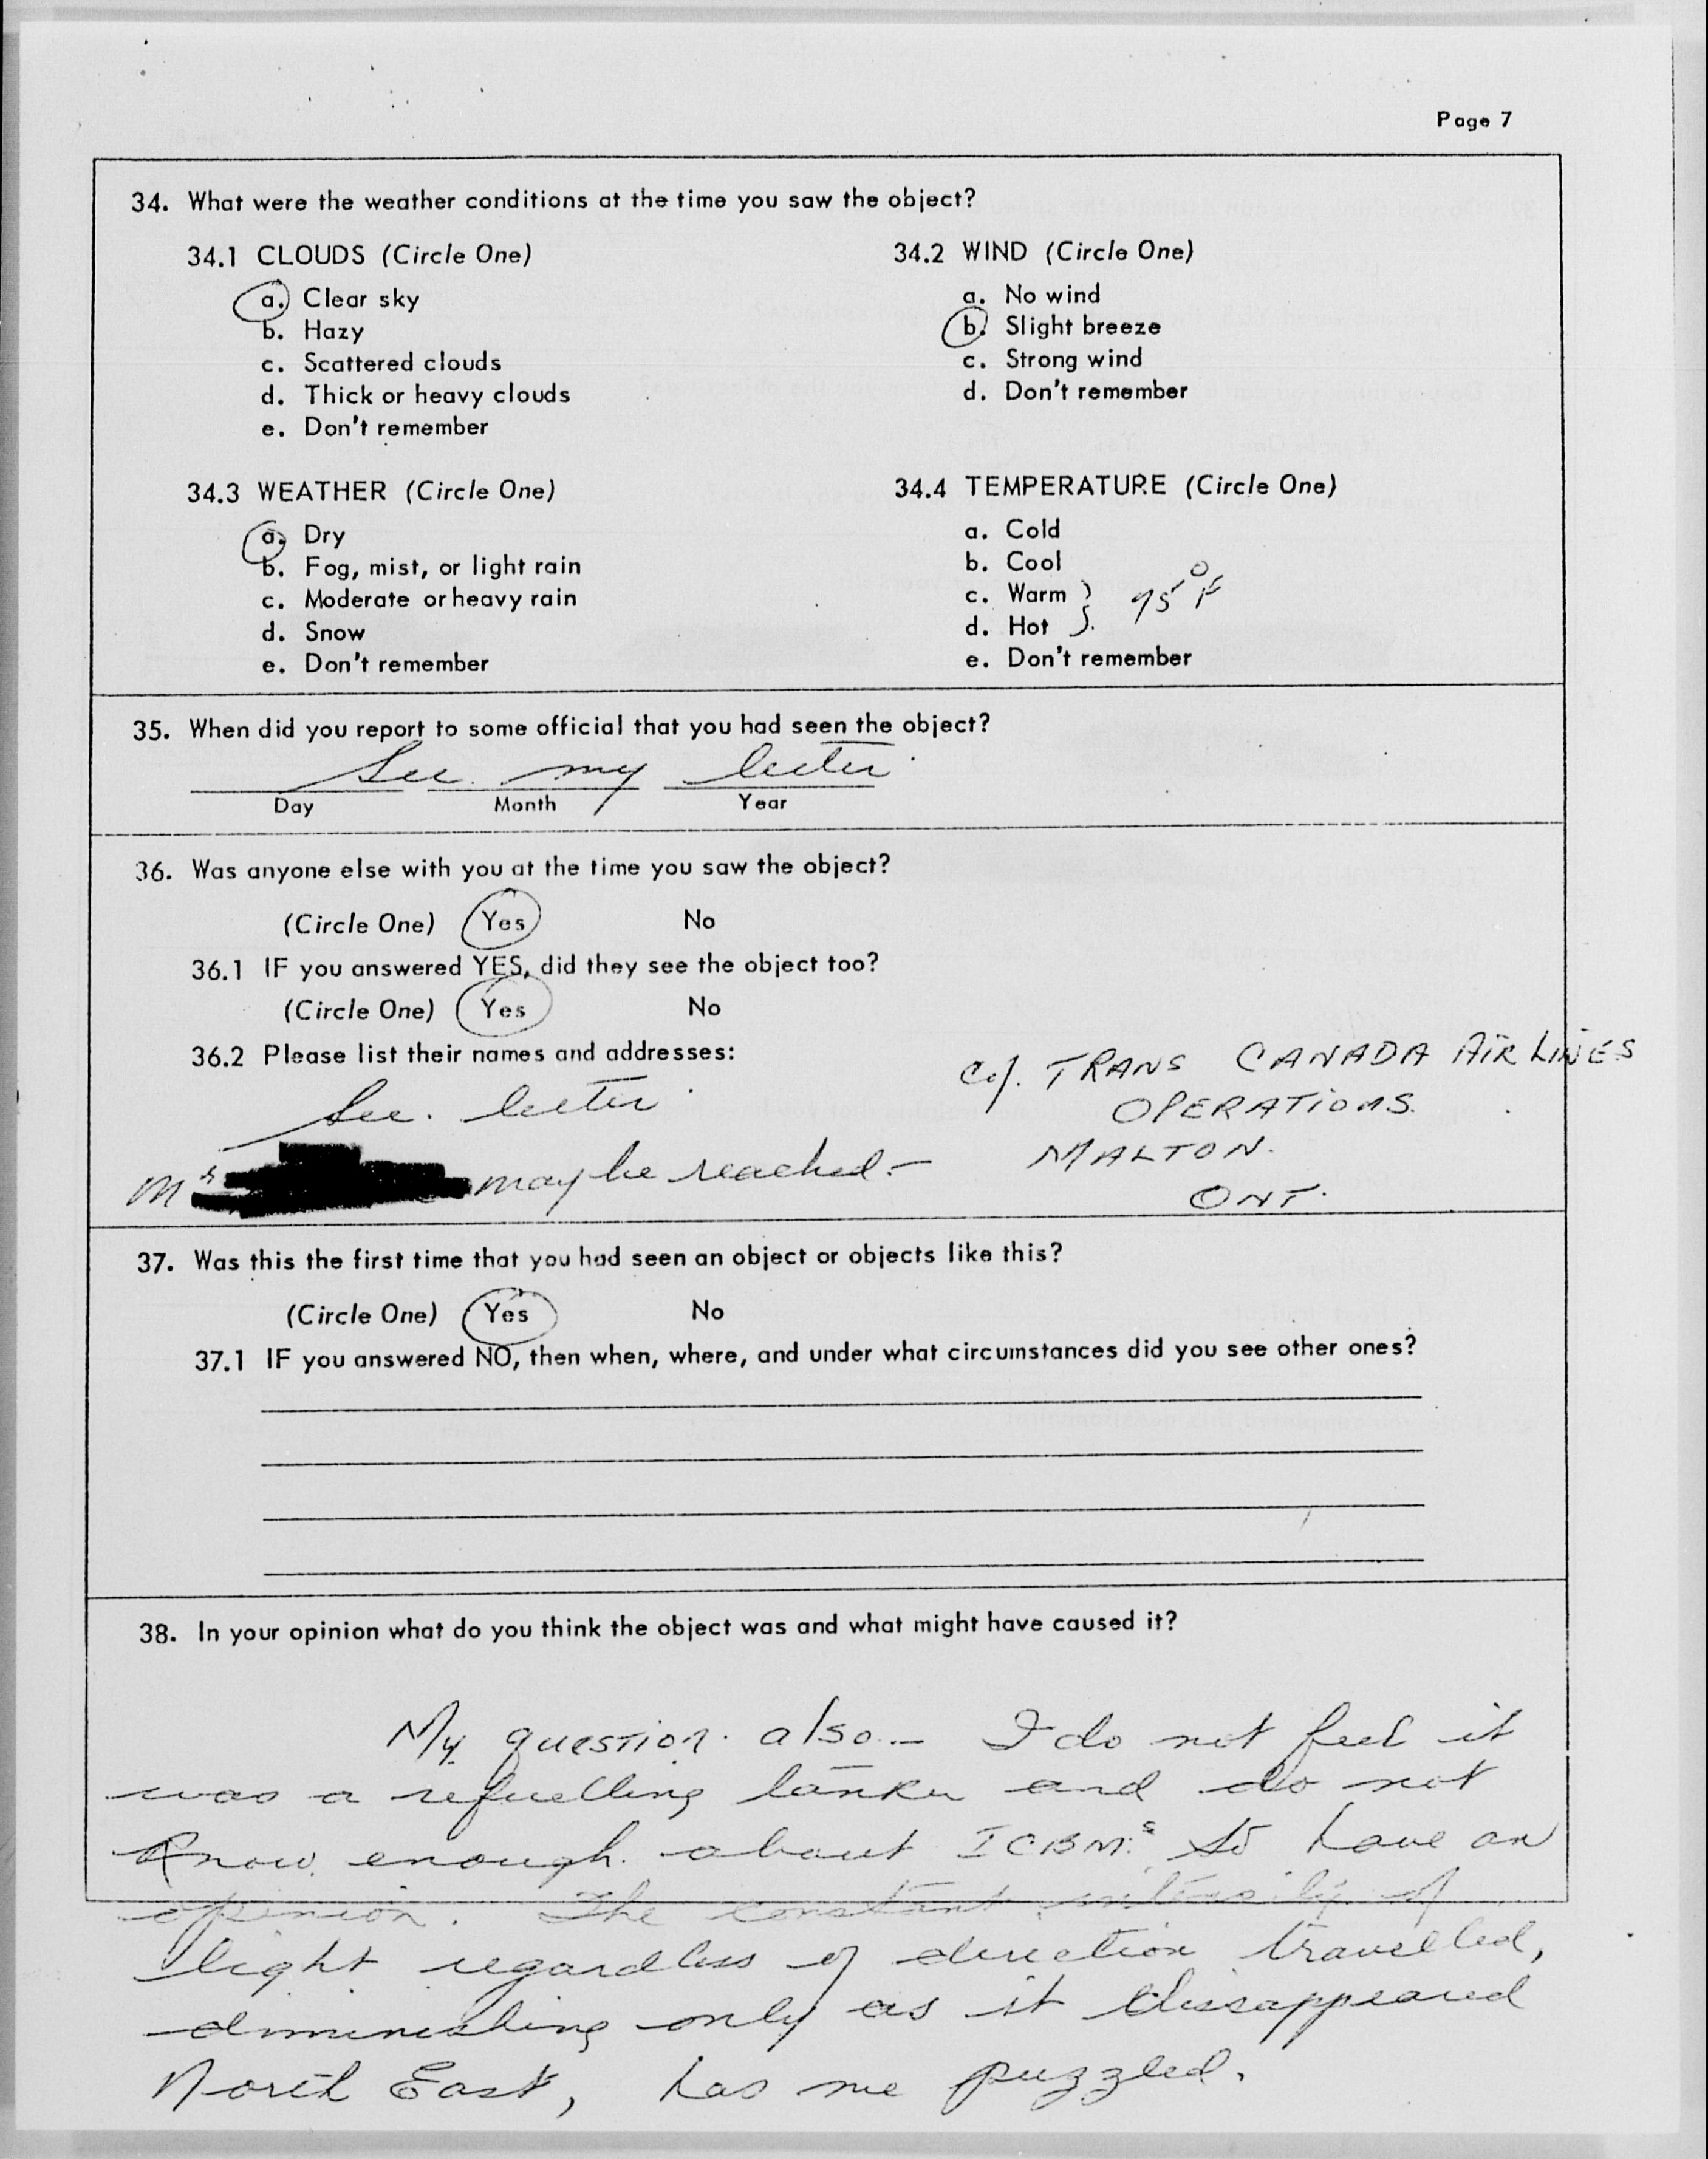 Page 7
34. What were the weather conditions at the time you saw the object?
34.1 CLOUDS (Circle One)
a. Clear sky
b. Hazy
c. Scattered clouds
d. Thick or heavy clouds
e. Don't remember
34.2 WIND (Circle One)
a. No wind
b. Slight breeze
c. Strong wind
d. Don't remember
34.3 WEATHER (Circle One)
a. Dry
b. Fog, mist, or light rain
c. Moderate or heavy rain
d. Snow
e. Don't remember
34.4 TEMPERATURE (Circle One)
a. Cold
b. Cool
c. Warm
d. Hot
°F
e. Don't remember
35. When did you report to some official that you had seen the object?
See my letter
Day Month Year
36. Was anyone else with you at the time you saw the object?
(Circle One) Yes No
36.1 IF you answered YES, did they see the object too?
(Circle One) Yes No
36.2 Please list their names and addresses:
See. letter
Mr may be reached. -
c/. TRANS CANADA AIR LINES
OPERATIONS.
MALTON.
ONT.
37. Was this the first time that you had seen an object or objects like this?
(Circle One) Yes No
37.1 IF you answered NO, then when, where, and under what circumstances did you see other ones?
38. In your opinion what do you think the object was and what might have caused it?
My question also - I do not feel it
was a refuelling tanker and do not
know enough about ICBM.s to have an
opinion. The constant intensity of
light regardless of direction travelled,
diminishing only as it dissappeared
North East, has me puzzled.